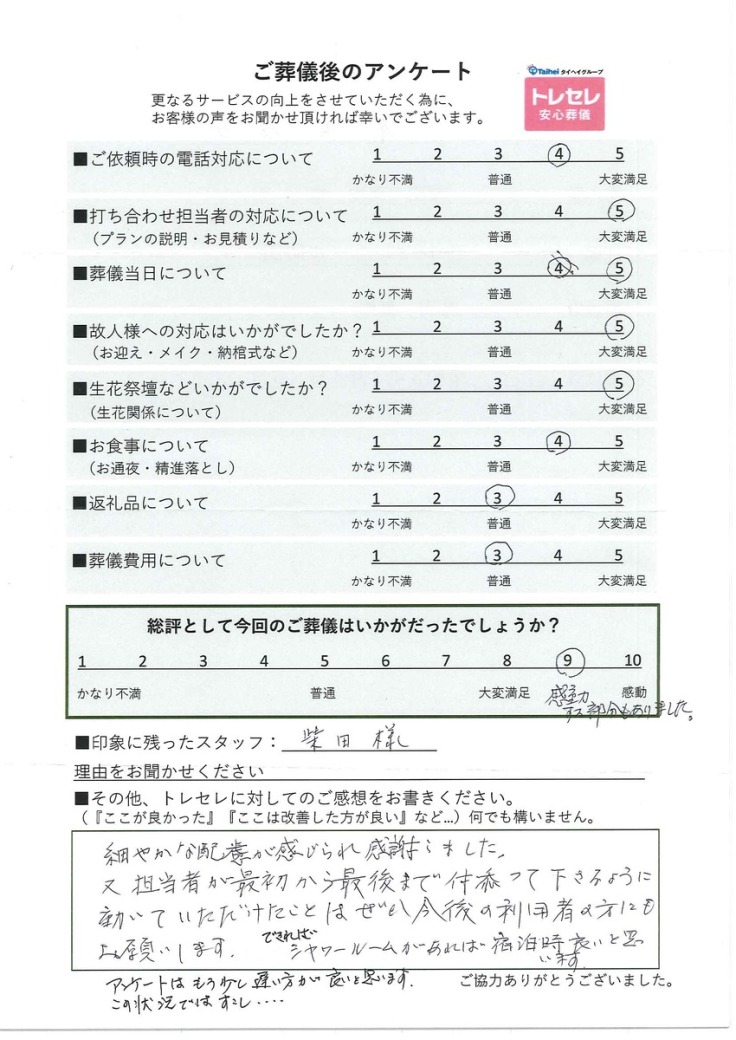 ご葬儀後のアンケート
Taihei タイヘイグループ
トレセレ
安心葬儀
更なるサービスの向上をさせていただく為に、
お客様の声をお聞かせ頂ければ幸いでございます。
■ご依頼時の電話対応について 1 2 3 4 5
かなり不満 普通 大変満足
■打ち合わせ担当者の対応について 1 2 3 4 5
（プランの説明・お見積りなど） かなり不満 普通 大変満足
■葬儀当日について 1 2 3 4 5
かなり不満 普通 大変満足
■故人様への対応はいかがでしたか？ 1 2 3 4 5
（お迎え・メイク・納棺式など） かなり不満 普通 大変満足
■生花祭壇などいかがでしたか？ 1 2 3 4 5
（生花関係について） かなり不満 普通 大変満足
■お食事について 1 2 3 4 5
（お通夜・精進落とし） かなり不満 普通 大変満足
■返礼品について 1 2 3 4 5
かなり不満 普通 大変満足
■葬儀費用について 1 2 3 4 5
かなり不満 普通 大変満足
総評として今回のご葬儀はいかがだったでしょうか？
1 2 3 4 5 6 7 8 9 10
かなり不満 普通 大変満足 感動
感動
する部分もありました。
■印象に残ったスタッフ： 柴田 様
理由をお聞かせください
■その他、トレセレに対してのご感想をお書きください。
（『ここが良かった』『ここは改善した方が良い』など…）何でも構いません。
細やかな配慮が感じられ感謝しました。
又担当者が最初から最後まで付添って下さるように
動いていただけたことはぜひ今後の利用者の方にも
お願いします。できればシャワールームがあれば宿泊時良いと思
います。
アンケートはもう少し遅い方が良いと思います。
ご協力ありがとうございました。
この状況ではすこし‥‥